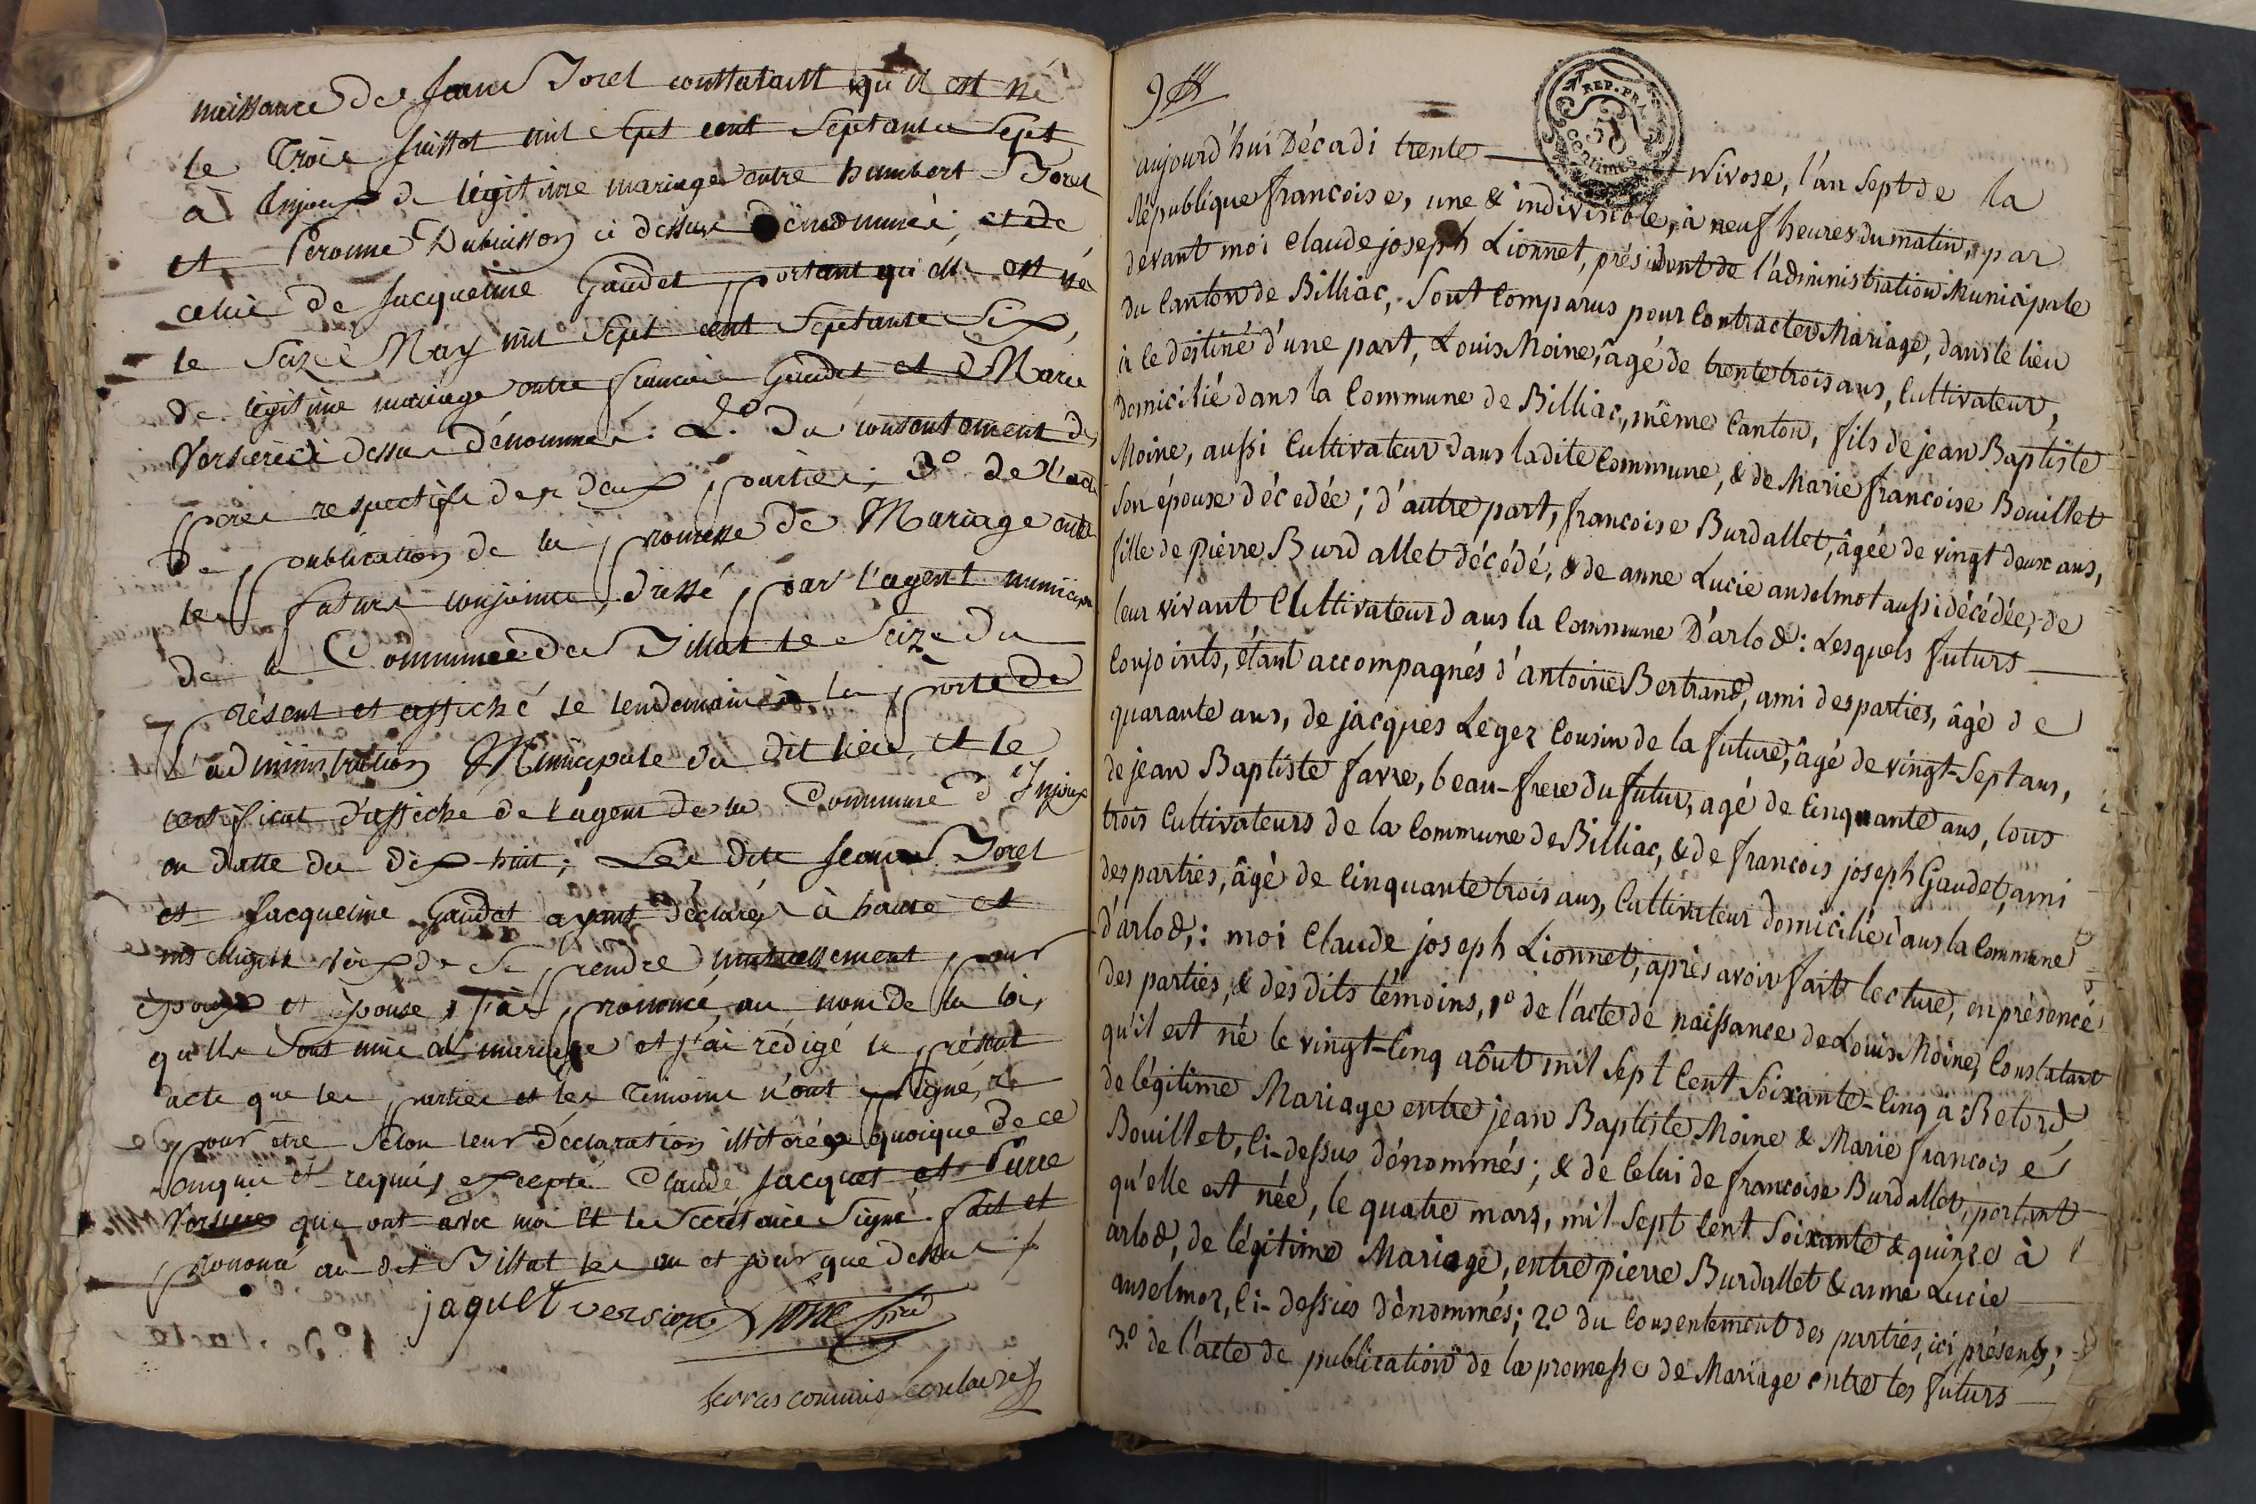 naissance de Jean Joret constatant qu'il est né
le Trois juillet mil sept cent septante sept
à Injoux de légitime mariage entre humbert Joret
et Peronne Dubuisson ci dessus dénommée, et de
celui de Jacqueline Gaudet, portant qu'elle est née
le Seize May mil sept cent septante six,
de légitime mariage entre francois Gaudet et de Marie
Versier ci dessus dénommés: 2.° Du consentement des
peres respectifs des deux parties; 3° de l'acte
de publication de la promesse de Mariage entre
les futurs conjoints, dressé par l'agent municipal
de la Commune de Billiat le Seize du
présent et affiché le lendemain à la porte de
l'administration Municipale du dit lieu, et le
certificat d'affiche de l'agent de la Commune d'Injoux
en datte du dix-huit; Les dits Jean Joret
et Jacqueline Gaudet ayant déclarés à haute et
intelligible voix de se prendre mutuellement pour
époux et épouse, j'ai prononcé au nom de la loi,
qu'ils sont unis en mariage et j'ai rédigé le présent
acte que les parties et les témoins n'ont signé,
pour être selon leur déclaration illitérés quoique de ce
enquis et requis, excepté Claude Jacquet et Pierre
Versier qui ont avec moi et le Secrétaire Signé. fait et
prononcé au dit Billiat les an et jour que dessus
jaquet versier
serras commis secretaire
9
REP. FRA.
50
centimes
aujourd'hui Décadi trente Nivose, l'an sept de la
République francoise, une & indivisible, à neuf heures du matin, par
devant moi Claude joseph Lionnet, président de l'administration Municipale
du Canton de Billiac, Sont Comparus pour Contracter Mariage, dans le lieu
à ce destiné d'une part, Louis Moine, âgé de trente trois ans, Cultivateur,
domicilié dans la Commune de Billiac, même Canton, fils de jean Baptiste
Moine, aussi Cultivateur dans ladite Commune, & de Marie francoise Bouillet
Son épouse décedée; d'autre part, francoise Burdallet, âgée de vingt deux ans,
fille de pierre Burdallet décédé, & de anne Lucie anselmot aussi décédée, de
leur vivant Cultivateurs dans la Commune D'arlod: Lesquels futurs
Conjoints, étant accompagnés d'antoine Bertrand, ami des parties, âgé de
quarante ans, de jacques Leger Cousin de la future, âgé de vingt-Sept ans,
de jean Baptiste favre, beau-frere du futur, agé de Cinquante ans, tous
trois Cultivateurs de la Commune de Billiac, & de francois joseph Gaudet, ami
des parties, âgé de Cinquante trois ans, Cultivateur domicilié dans la Commune
d'arlod,: moi Claude joseph Lionnet, après avoir fait lecture, en présence
des parties, & des dits témoins, 1° de l'acte de naissance de Louis Moine, Constatant
qu'il est né le vingt-Cinq août mil Sept Cent Soixante-Cinq à Retord
de légitime Mariage entre jean Baptiste Moine & Marie francoise
Bouillet, Ci-dessus dénommés; & de Celui de francoise Burdallet, portant
qu'elle est née, le quatre mars, mil Sept Cent Soixante & quinze à
arlod, de légitime Mariage, entre pierre Burdallet & anne Lucie
anselmoz, Ci-dessus dénommés; 2.° du Consentement des parties, ici présents;
3.° de l'acte de publication de la promesse de Mariage entre les futurs